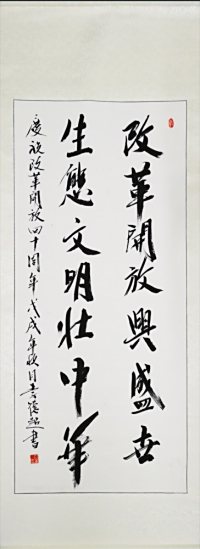 改革開放興盛世
生態文明壯中華
慶祝改革開放四十周年戊戌年秋月
書